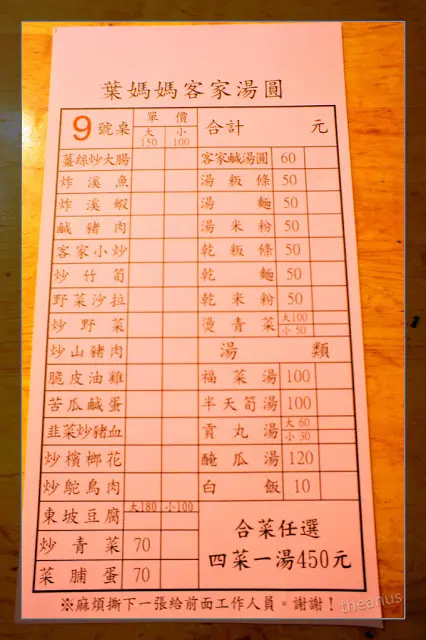 葉媽媽客家湯圓
9號桌 單價 合計 元
大150 小100
薑絲炒大腸 客家鹹湯圓 60
炸溪魚 湯粄條 50
炸溪蝦 湯麵 50
鹹豬肉 湯米粉 50
客家小炒 乾粄條 50
炒竹筍 乾麵 50
野菜沙拉 乾米粉 50
炒野菜 燙青菜 大100 小50
炒山豬肉 湯類
脆皮油雞 福菜湯 100
苦瓜鹹蛋 半天筍湯 100
韭菜炒豬血 貢丸湯 大60 小30
炒檳榔花 醃瓜湯 120
炒鴕鳥肉 白飯 10
東坡豆腐 大180 小100
炒青菜 70
菜脯蛋 70
合菜任選
四菜一湯450元
※麻煩撕下一張給前面工作人員。謝謝!
theanus